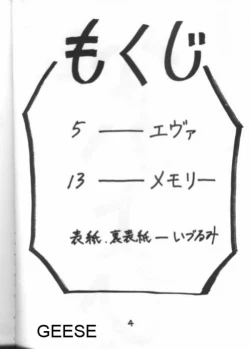 もくじ
5 ― エヴァ
13 ― メモリー
表紙.裏表紙 ― いづるみ
4
GEESE